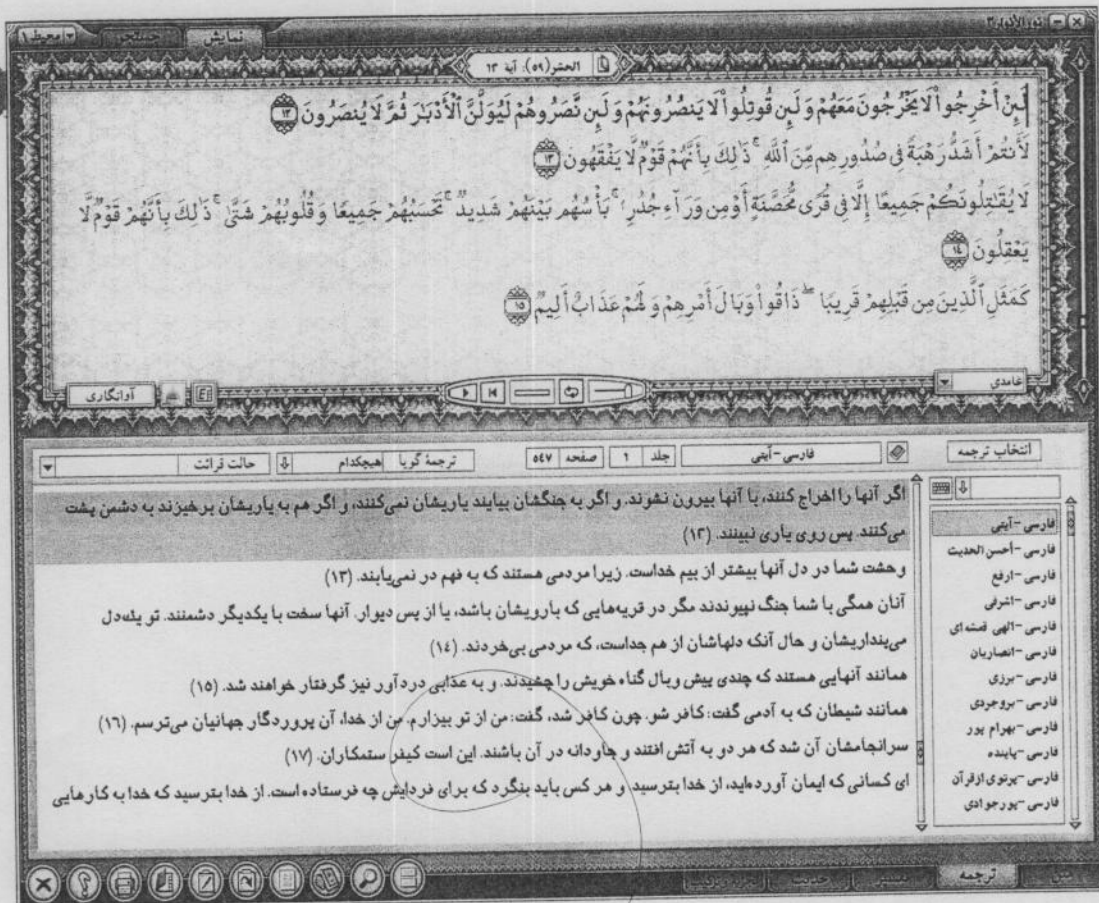 نور الأنوار ۳
نمایش
جستجو
محیط ۱
الحشر(۵۹): آیهٔ ۱۳
لَئِنْ أُخْرِجُوا۟ لَا يَخْرُجُونَ مَعَهُمْ وَلَئِن قُوتِلُوا۟ لَا يَنصُرُونَهُمْ وَلَئِن نَّصَرُوهُمْ لَيُوَلُّنَّ ٱلْأَدْبَٰرَ ثُمَّ لَا يُنصَرُونَ ۱۲
لَأَنتُمْ أَشَدُّ رَهْبَةً فِى صُدُورِهِم مِّنَ ٱللَّهِ ۚ ذَٰلِكَ بِأَنَّهُمْ قَوْمٌ لَّا يَفْقَهُونَ ۱۳
لَا يُقَٰتِلُونَكُمْ جَمِيعًا إِلَّا فِى قُرًى مُّحَصَّنَةٍ أَوْ مِن وَرَآءِ جُدُرٍۭ ۚ بَأْسُهُم بَيْنَهُمْ شَدِيدٌ ۚ تَحْسَبُهُمْ جَمِيعًا وَقُلُوبُهُمْ شَتَّىٰ ۚ ذَٰلِكَ بِأَنَّهُمْ قَوْمٌ لَّا
يَعْقِلُونَ ۱٤
كَمَثَلِ ٱلَّذِينَ مِن قَبْلِهِمْ قَرِيبًا ۖ ذَاقُوا۟ وَبَالَ أَمْرِهِمْ وَلَهُمْ عَذَابٌ أَلِيمٌ ۱۵
غامدی
آوانگاری
انتخاب ترجمه
فارسی-آیتی
جلد ۱ صفحه ۵٤۷
ترجمهٔ گویا هیچکدام
حالت قرائت
اگر آنها را اخراج کنند، با آنها بیرون نشوند. و اگر به جنگشان بیایند یاریشان نمی‌کنند، و اگر هم به یاریشان برخیزند به دشمن پشت
می‌کنند. پس روی یاری نبینند. (۱۲)
وحشت شما در دل آنها بیشتر از بیم خداست. زیرا مردمی هستند که به فهم در نمی‌یابند. (۱۳)
آنان همگی با شما جنگ نپیوندند مگر در قریه‌هایی که بارویشان باشد، یا از پس دیوار. آنها سخت با یکدیگر دشمنند. تو یکدل
می‌پنداریشان و حال آنکه دلهاشان از هم جداست، که مردمی بی‌خردند. (۱٤)
همانند آنهایی هستند که چندی پیش وبال گناه خویش را چشیدند. و به عذابی دردآور نیز گرفتار خواهند شد. (۱۵)
همانند شیطان که به آدمی گفت: کافر شو. چون کافر شد، گفت: من از تو بیزارم. من از خدا، آن پروردگار جهانیان می‌ترسم. (۱٦)
سرانجامشان آن شد که هر دو به آتش افتند و جاودانه در آن باشند. این است کیفر ستمکاران. (۱۷)
ای کسانی که ایمان آورده‌اید، از خدا بترسید و هر کس باید بنگرد که برای فردایش چه فرستاده است. از خدا بترسید که خدا به کارهایی
فارسی-آیتی
فارسی-أحسن الحدیث
فارسی-ارفع
فارسی-اشرفی
فارسی-الهی قمشه‌ای
فارسی-انصاریان
فارسی-برزی
فارسی-بروجردی
فارسی-بهرام پور
فارسی-پاینده
فارسی-پرتوی ازقرآن
فارسی-پورجوادی
متن
ترجمه
تفسیر
حدیث
تجزیه و ترکیب